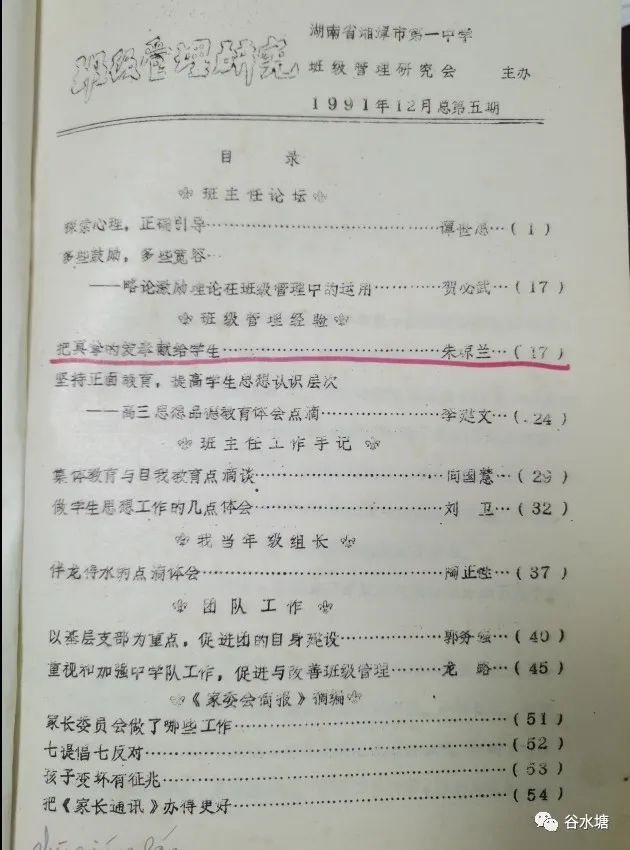 湖南省湘潭市第一中学
班级管理研究
班级管理研究会 主办
1991年12月总第五期
目 录
班主任论坛
探索心理，正确引导……谭世愿…(1)
多些鼓励，多些宽容…
——略论激励理论在班级管理中的运用……贺必武…(17)
班级管理经验
把真挚的爱奉献给学生……朱绿兰…(17)
坚持正面教育，提高学生思想认识层次
——高三思想品德教育体会点滴……李建文…(24)
班主任工作手记
集体教育与自我教育点滴谈……向国慧…(29)
做学生思想工作的几点体会……刘 卫…(32)
我当年级组长
伴龙得水的点滴体会……正…(37)
团队工作
以基层支部为重点，促进团的自身建设……郭务强…(40)
重视和加强中学队工作，促进与改善班级管理……龙 略…(45)
《家委会简报》摘编
家长委员会做了哪些工作……(51)
七提倡七反对……(52)
孩子变坏有征兆……(53)
把《家长通讯》办得更好……(54)
谷水塘